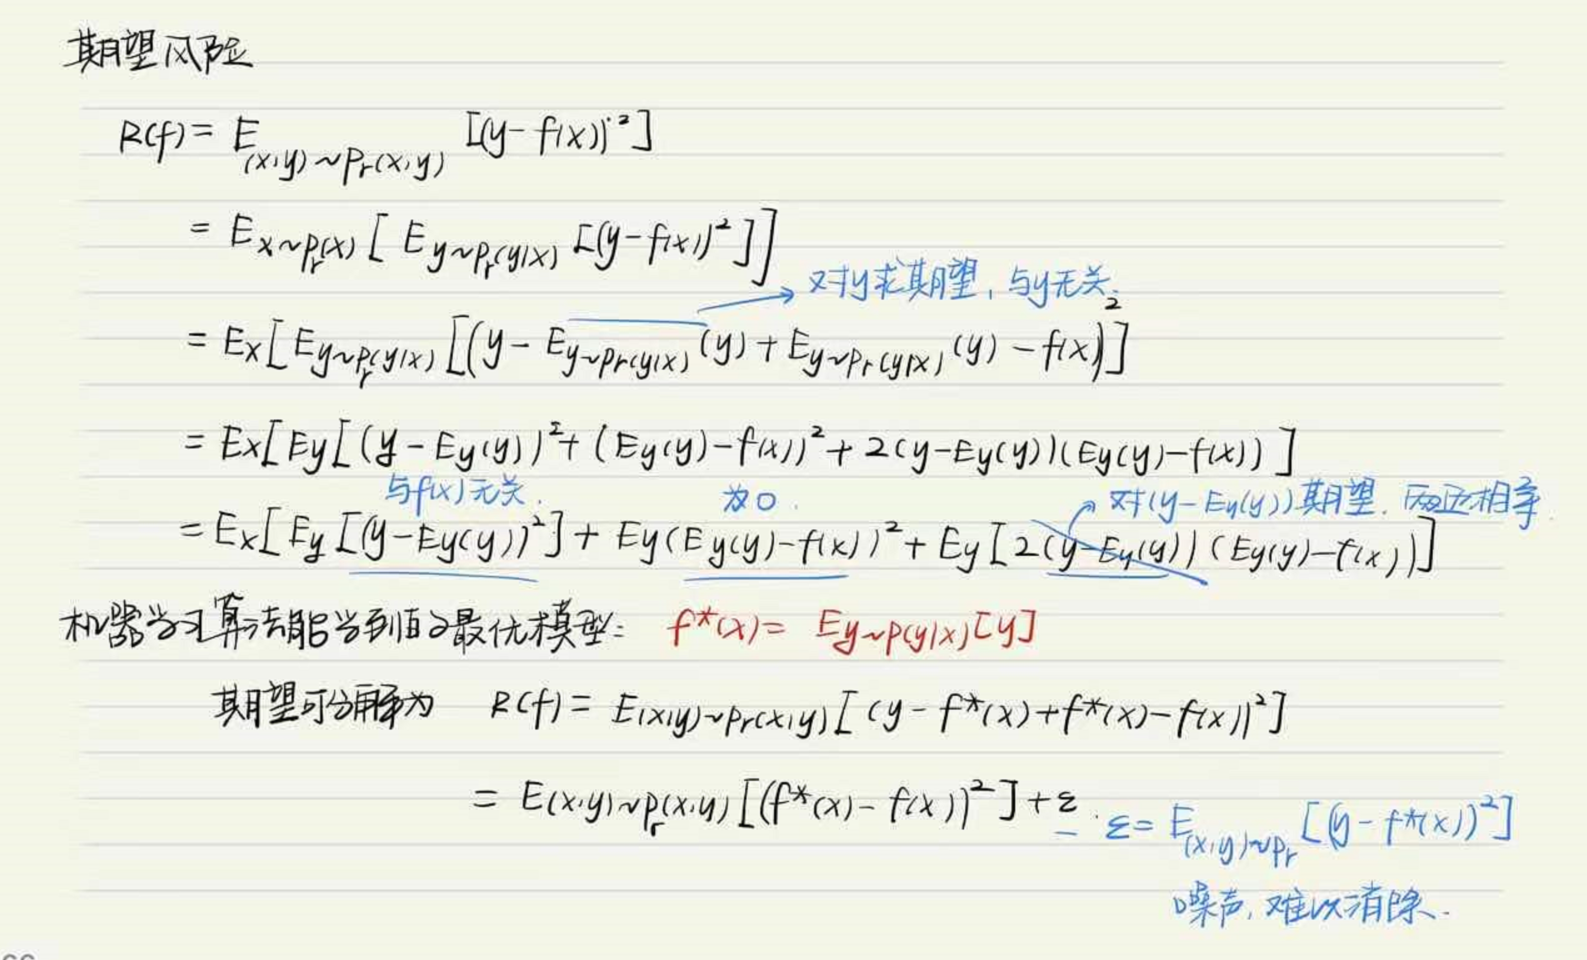 期望风险
R(f) = E_{(x,y)~Pr(x,y)} [(y-f(x))²]
= E_{x~Pr(x)} [ E_{y~Pr(y|x)} [(y-f(x))²]]
对y求期望,与y无关.
= Ex[E_{y~Pr(y|x)} [(y - E_{y~Pr(y|x)}(y) + E_{y~Pr(y|x)}(y) - f(x))²]
= Ex[Ey[(y-Ey(y))² + (Ey(y)-f(x))² + 2(y-Ey(y))(Ey(y)-f(x))]
与f(x)无关. 为0. 对(y-Ey(y))期望,相等
= Ex[Ey[(y-Ey(y))²] + Ey(Ey(y)-f(x))² + Ey[2(y-Ey(y))(Ey(y)-f(x))]]
机器学习算法能学到的最优模型: f*(x) = E_{y~p(y|x)}[y]
期望可分解为 R(f) = E_{(x,y)~Pr(x,y)}[(y-f*(x)+f*(x)-f(x))²]
= E_{(x,y)~Pr(x,y)}[(f*(x)-f(x))²] + ε. ε = E_{(x,y)~Pr}[(y-f*(x))²]
噪声,难以消除.